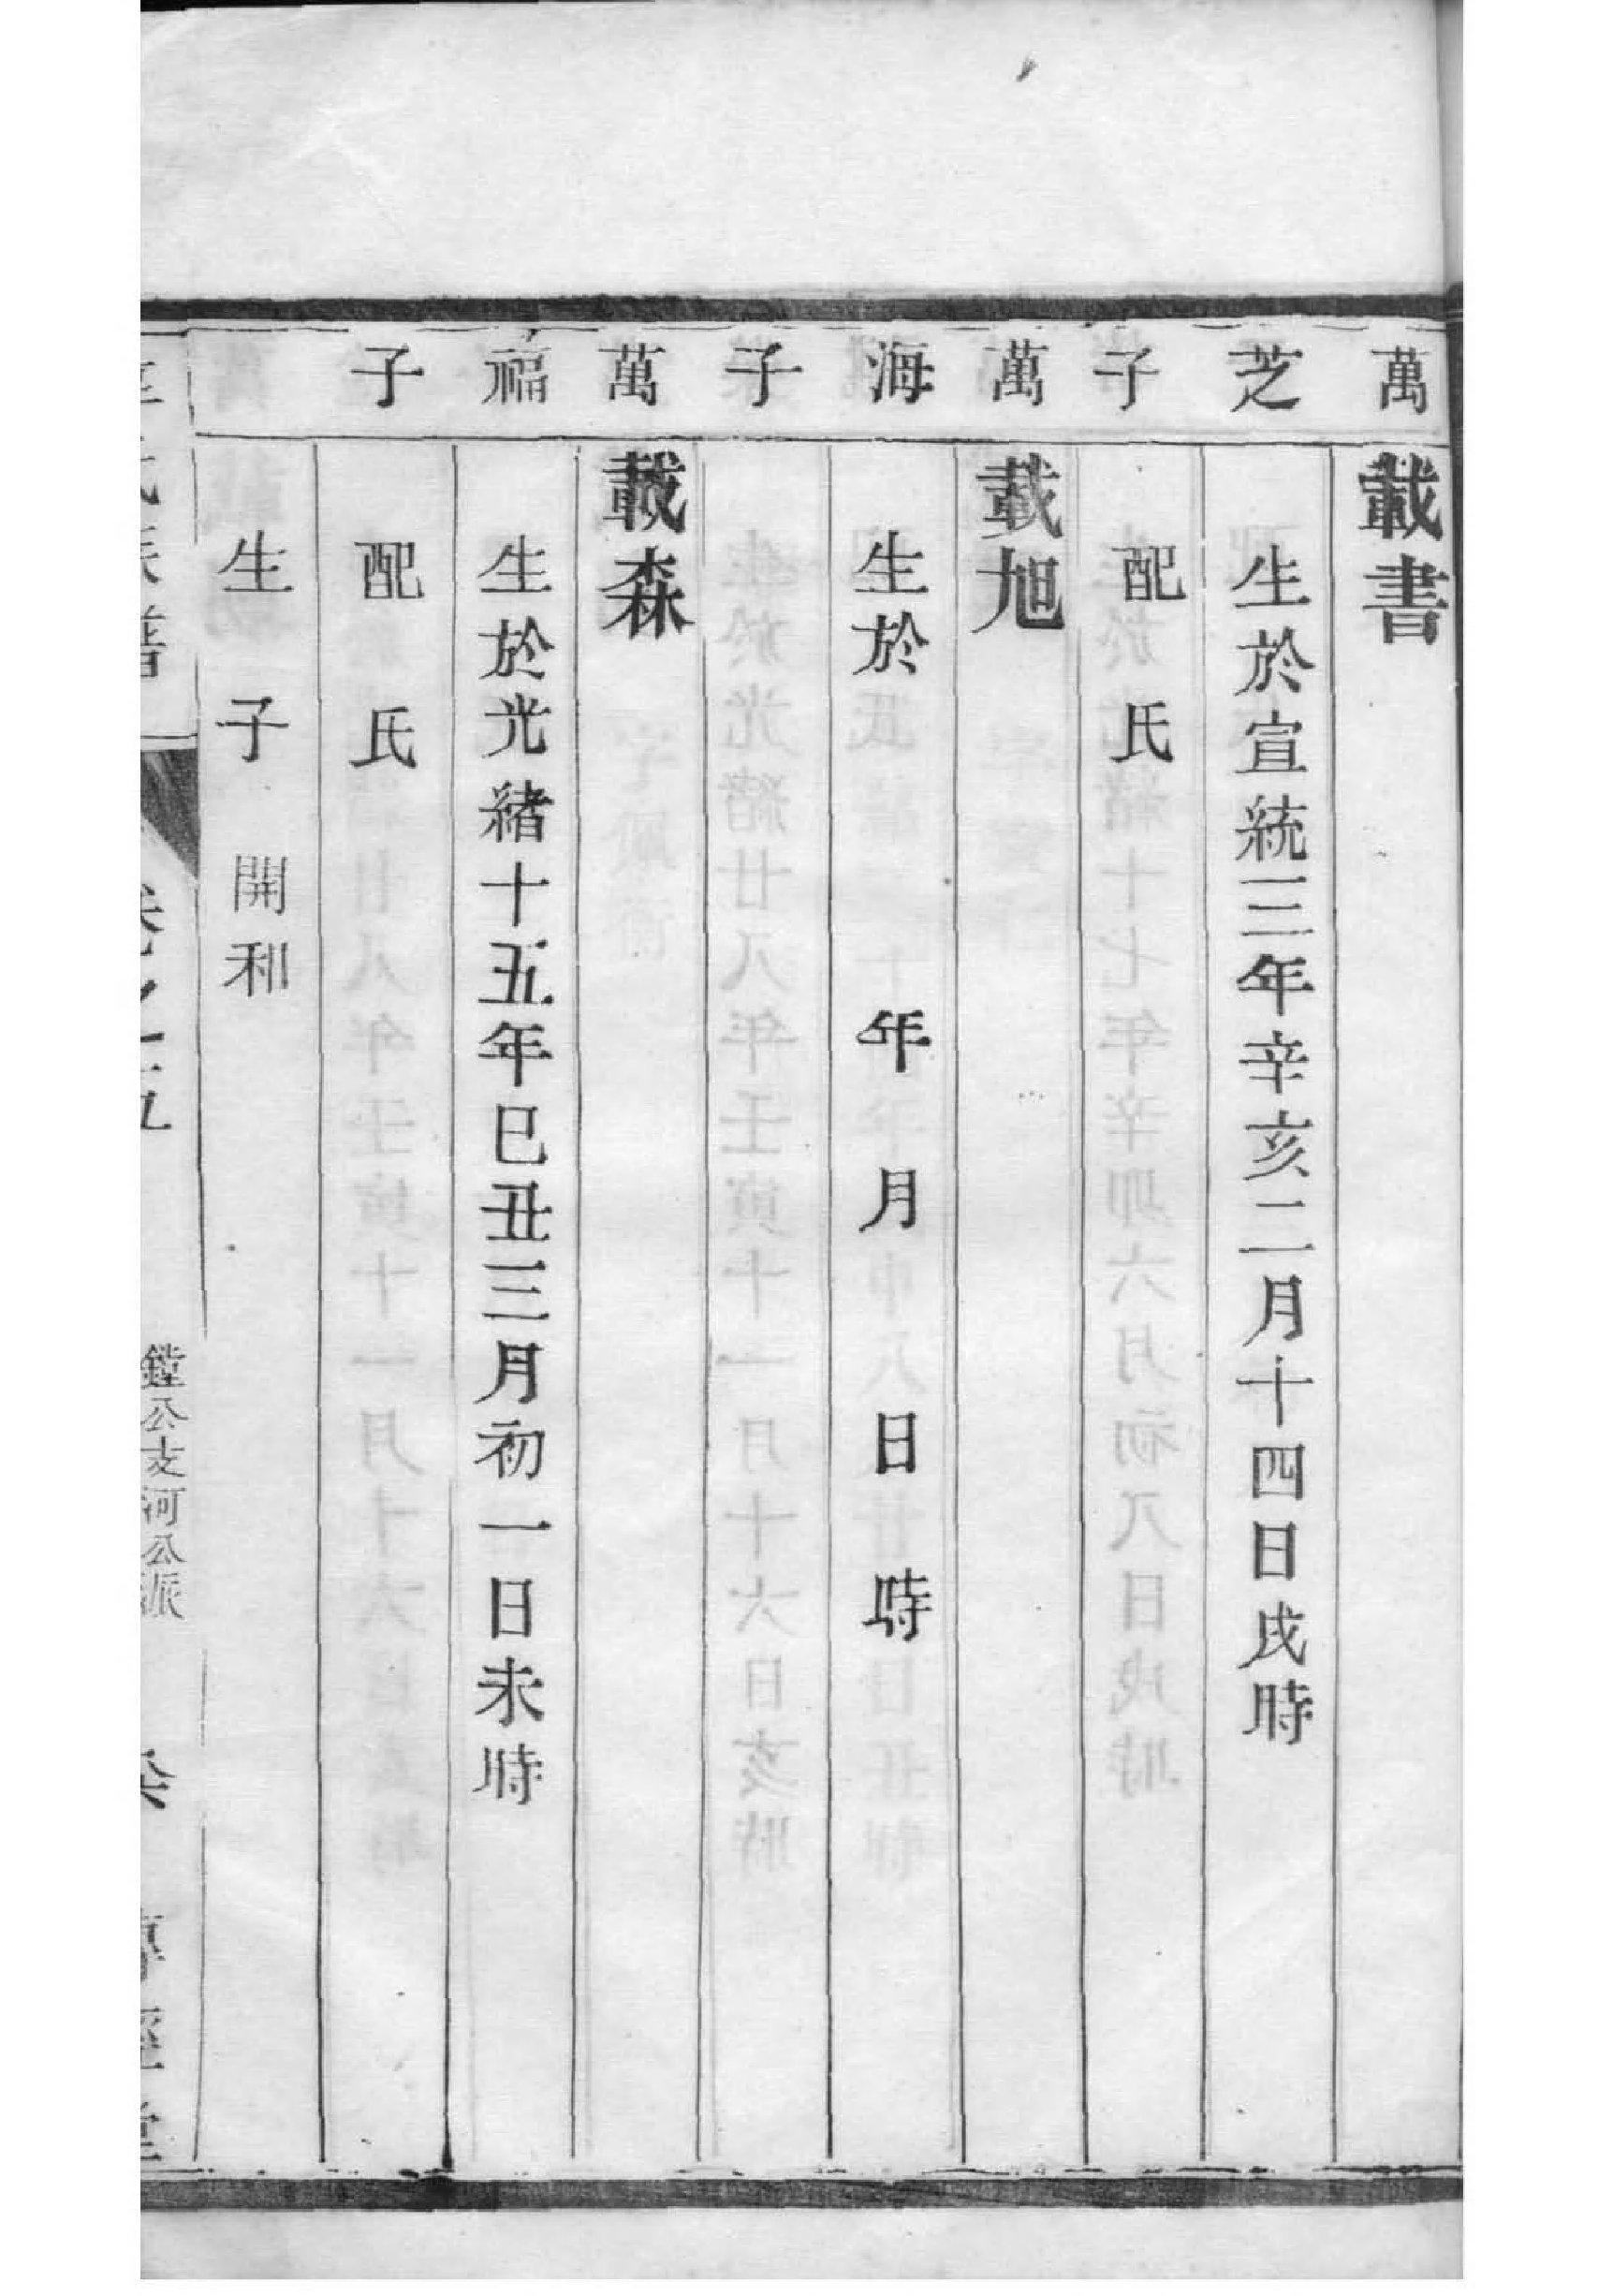 萬芝子萬海子萬福子
載書
生於宣統三年辛亥二月十四日戌時
配氏
載旭
生於年月日時
載森
生於光緒十五年巳丑三月初一日未時
配氏
生子開利
氏族譜
卷之十五
鏜公支河公派